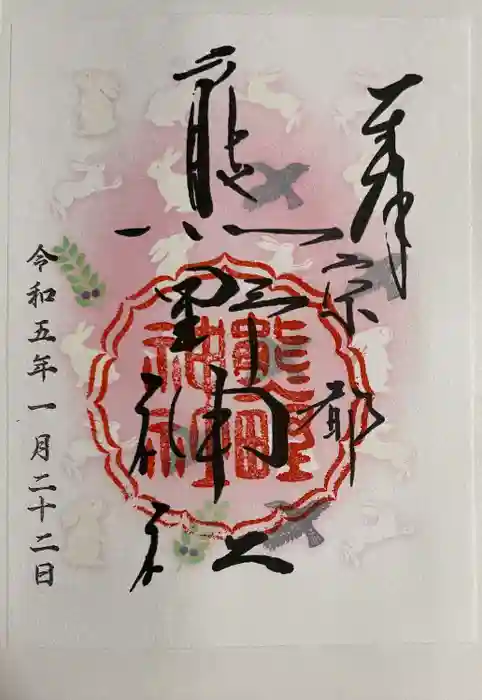 奉拝
京都
熊野神社
熊野
神社
令和五年一月二十二日